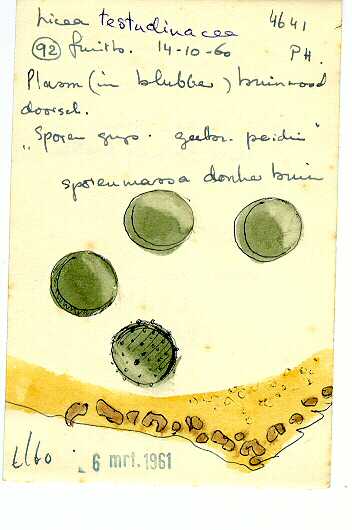 Licea testudinacea 4641
(92) fruitb. 14-10-60 PH.
Plasm (in blubber) bruinrood
doorsch.
„Sporen grijs. geelbr. peridie"
sporenmassa donker bruin
t/60 6 mrt. 1961